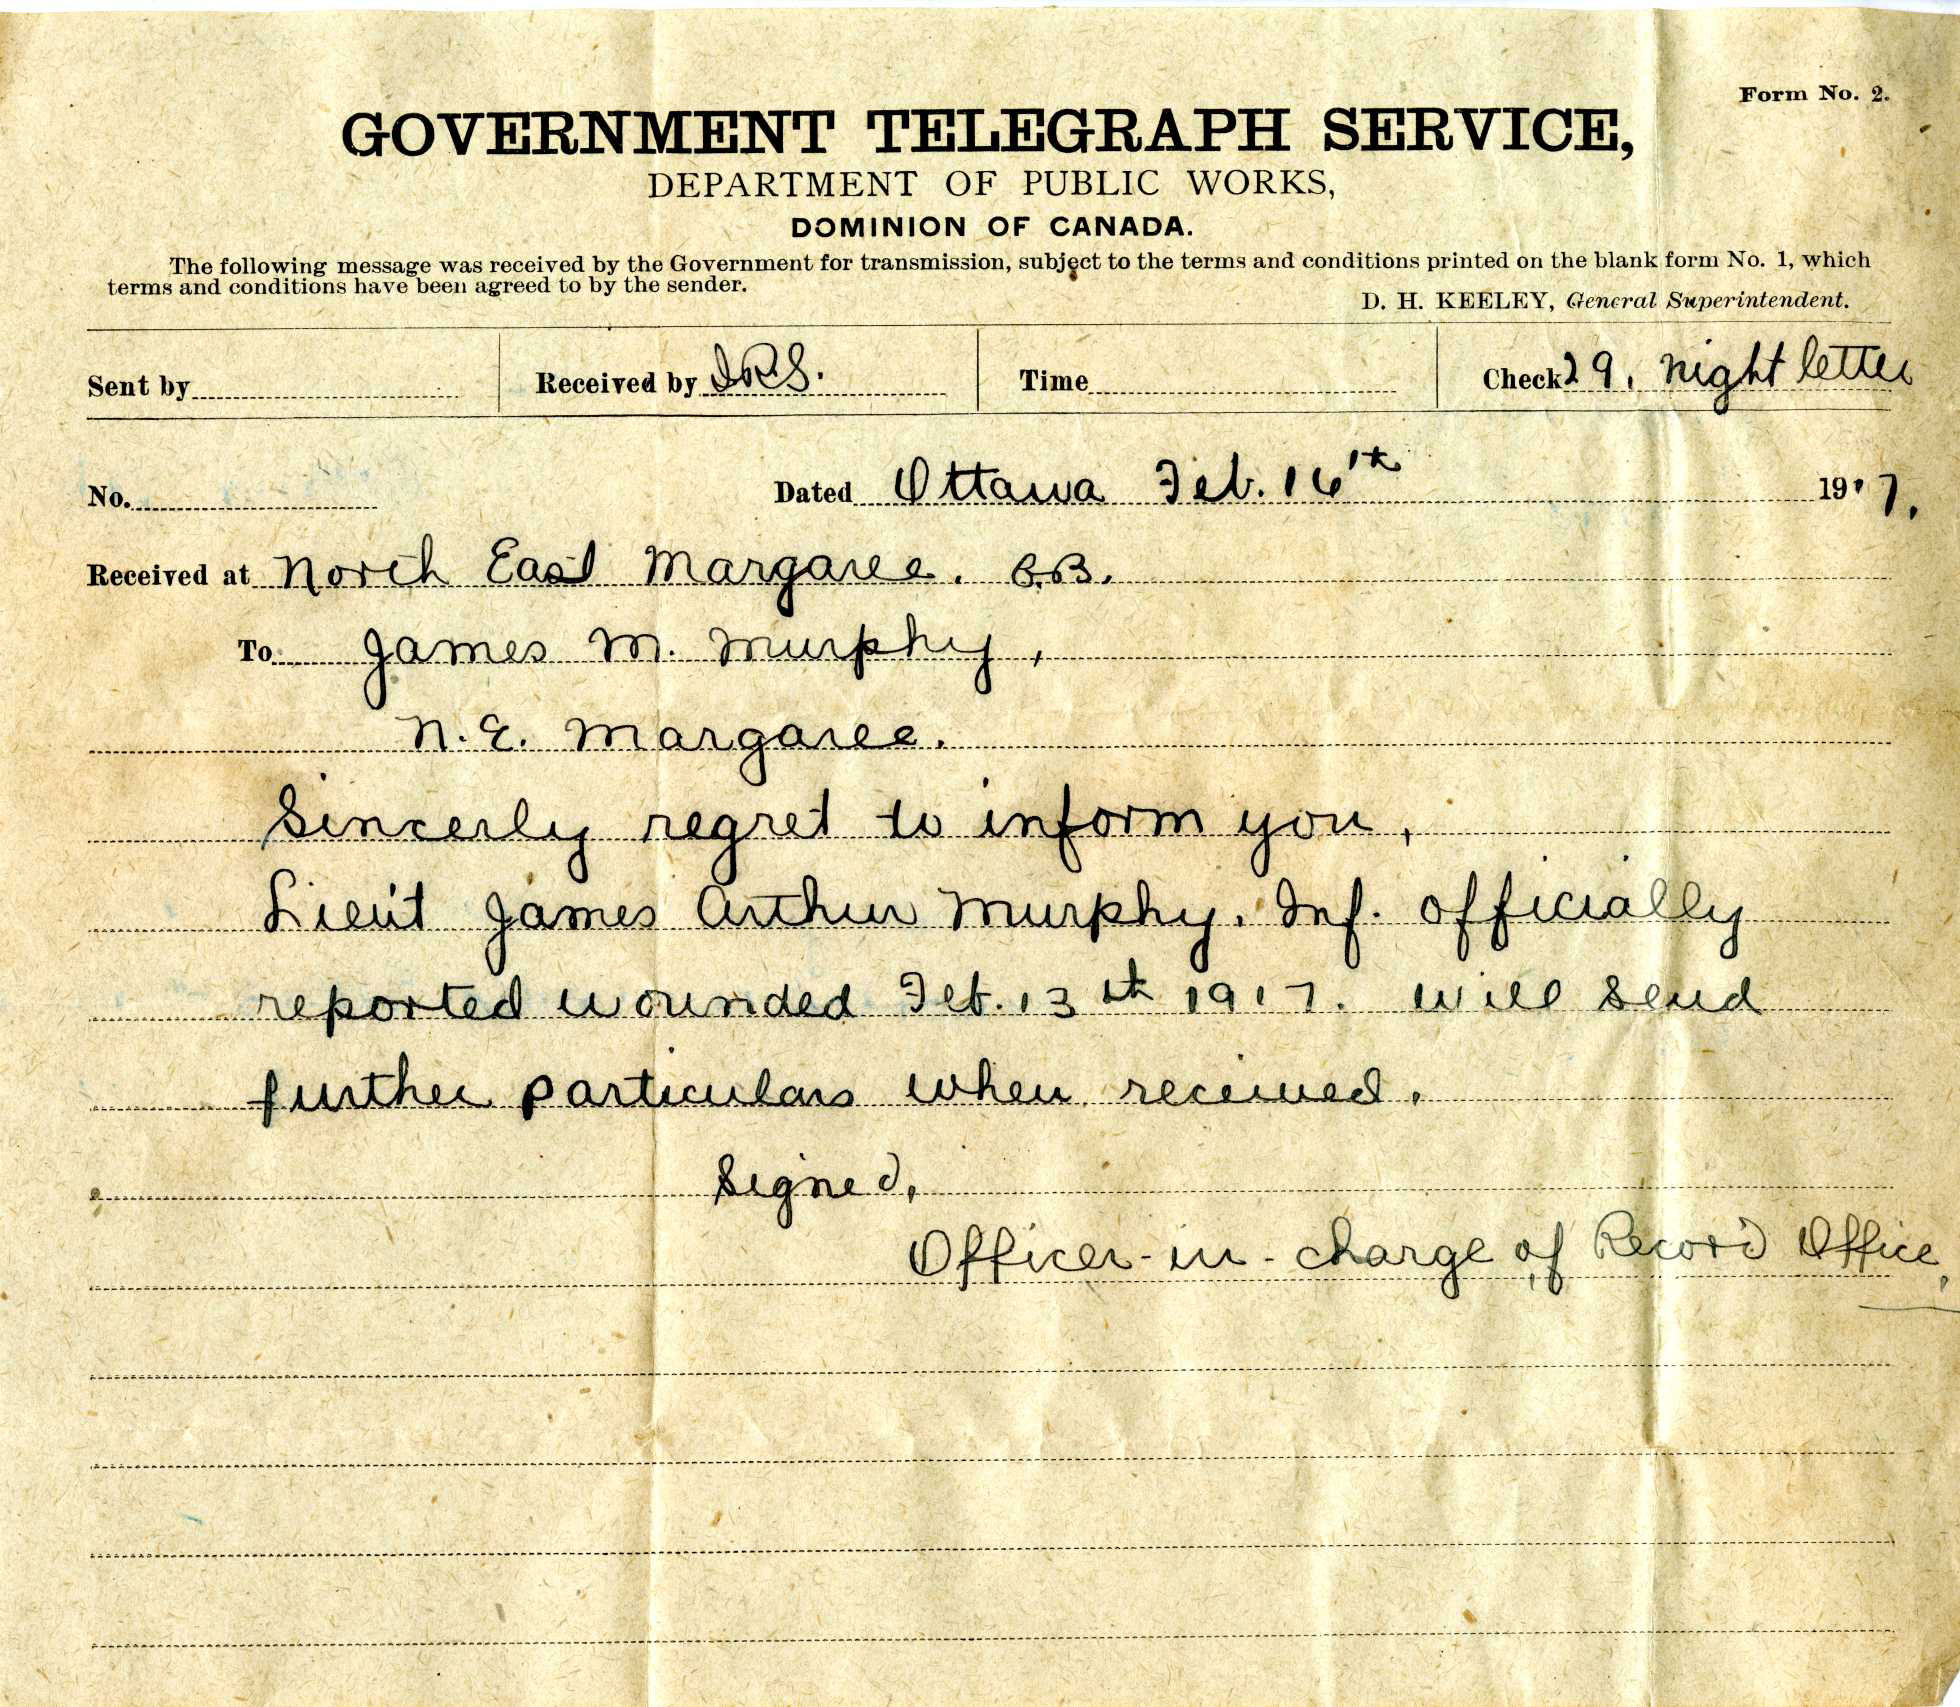 Form No. 2.
GOVERNMENT TELEGRAPH SERVICE,
DEPARTMENT OF PUBLIC WORKS,
DOMINION OF CANADA.
The following message was received by the Government for transmission, subject to the terms and conditions printed on the blank form No. 1, which
terms and conditions have been agreed to by the sender.
D. H. KEELEY, General Superintendent.
Sent by Received by Time Check 29, night letter
No. Dated Ottawa Feb. 16th 1917.
Received at North East Margaree. C.B.
To James M. Murphy,
N.E. Margaree.
Sincerly regret to inform you,
Lieu't James Arthur Murphy. Inf. officially
reported wounded Feb. 13th 1917. Will send
further particulars when received.
Signed,
Officer-in-charge of Record Office,